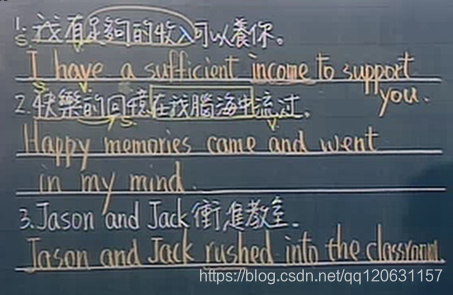 1. 我有足夠的收入可以養你。
S
I have a sufficient income to support
you.
2. 快樂的回憶在我腦海中流过。
S V
Happy memories came and went
in my mind.
3. Jason and Jack 衝進教室.
Jason and Jack rushed into the classroom.
https://blog.csdn.net/qq120631157